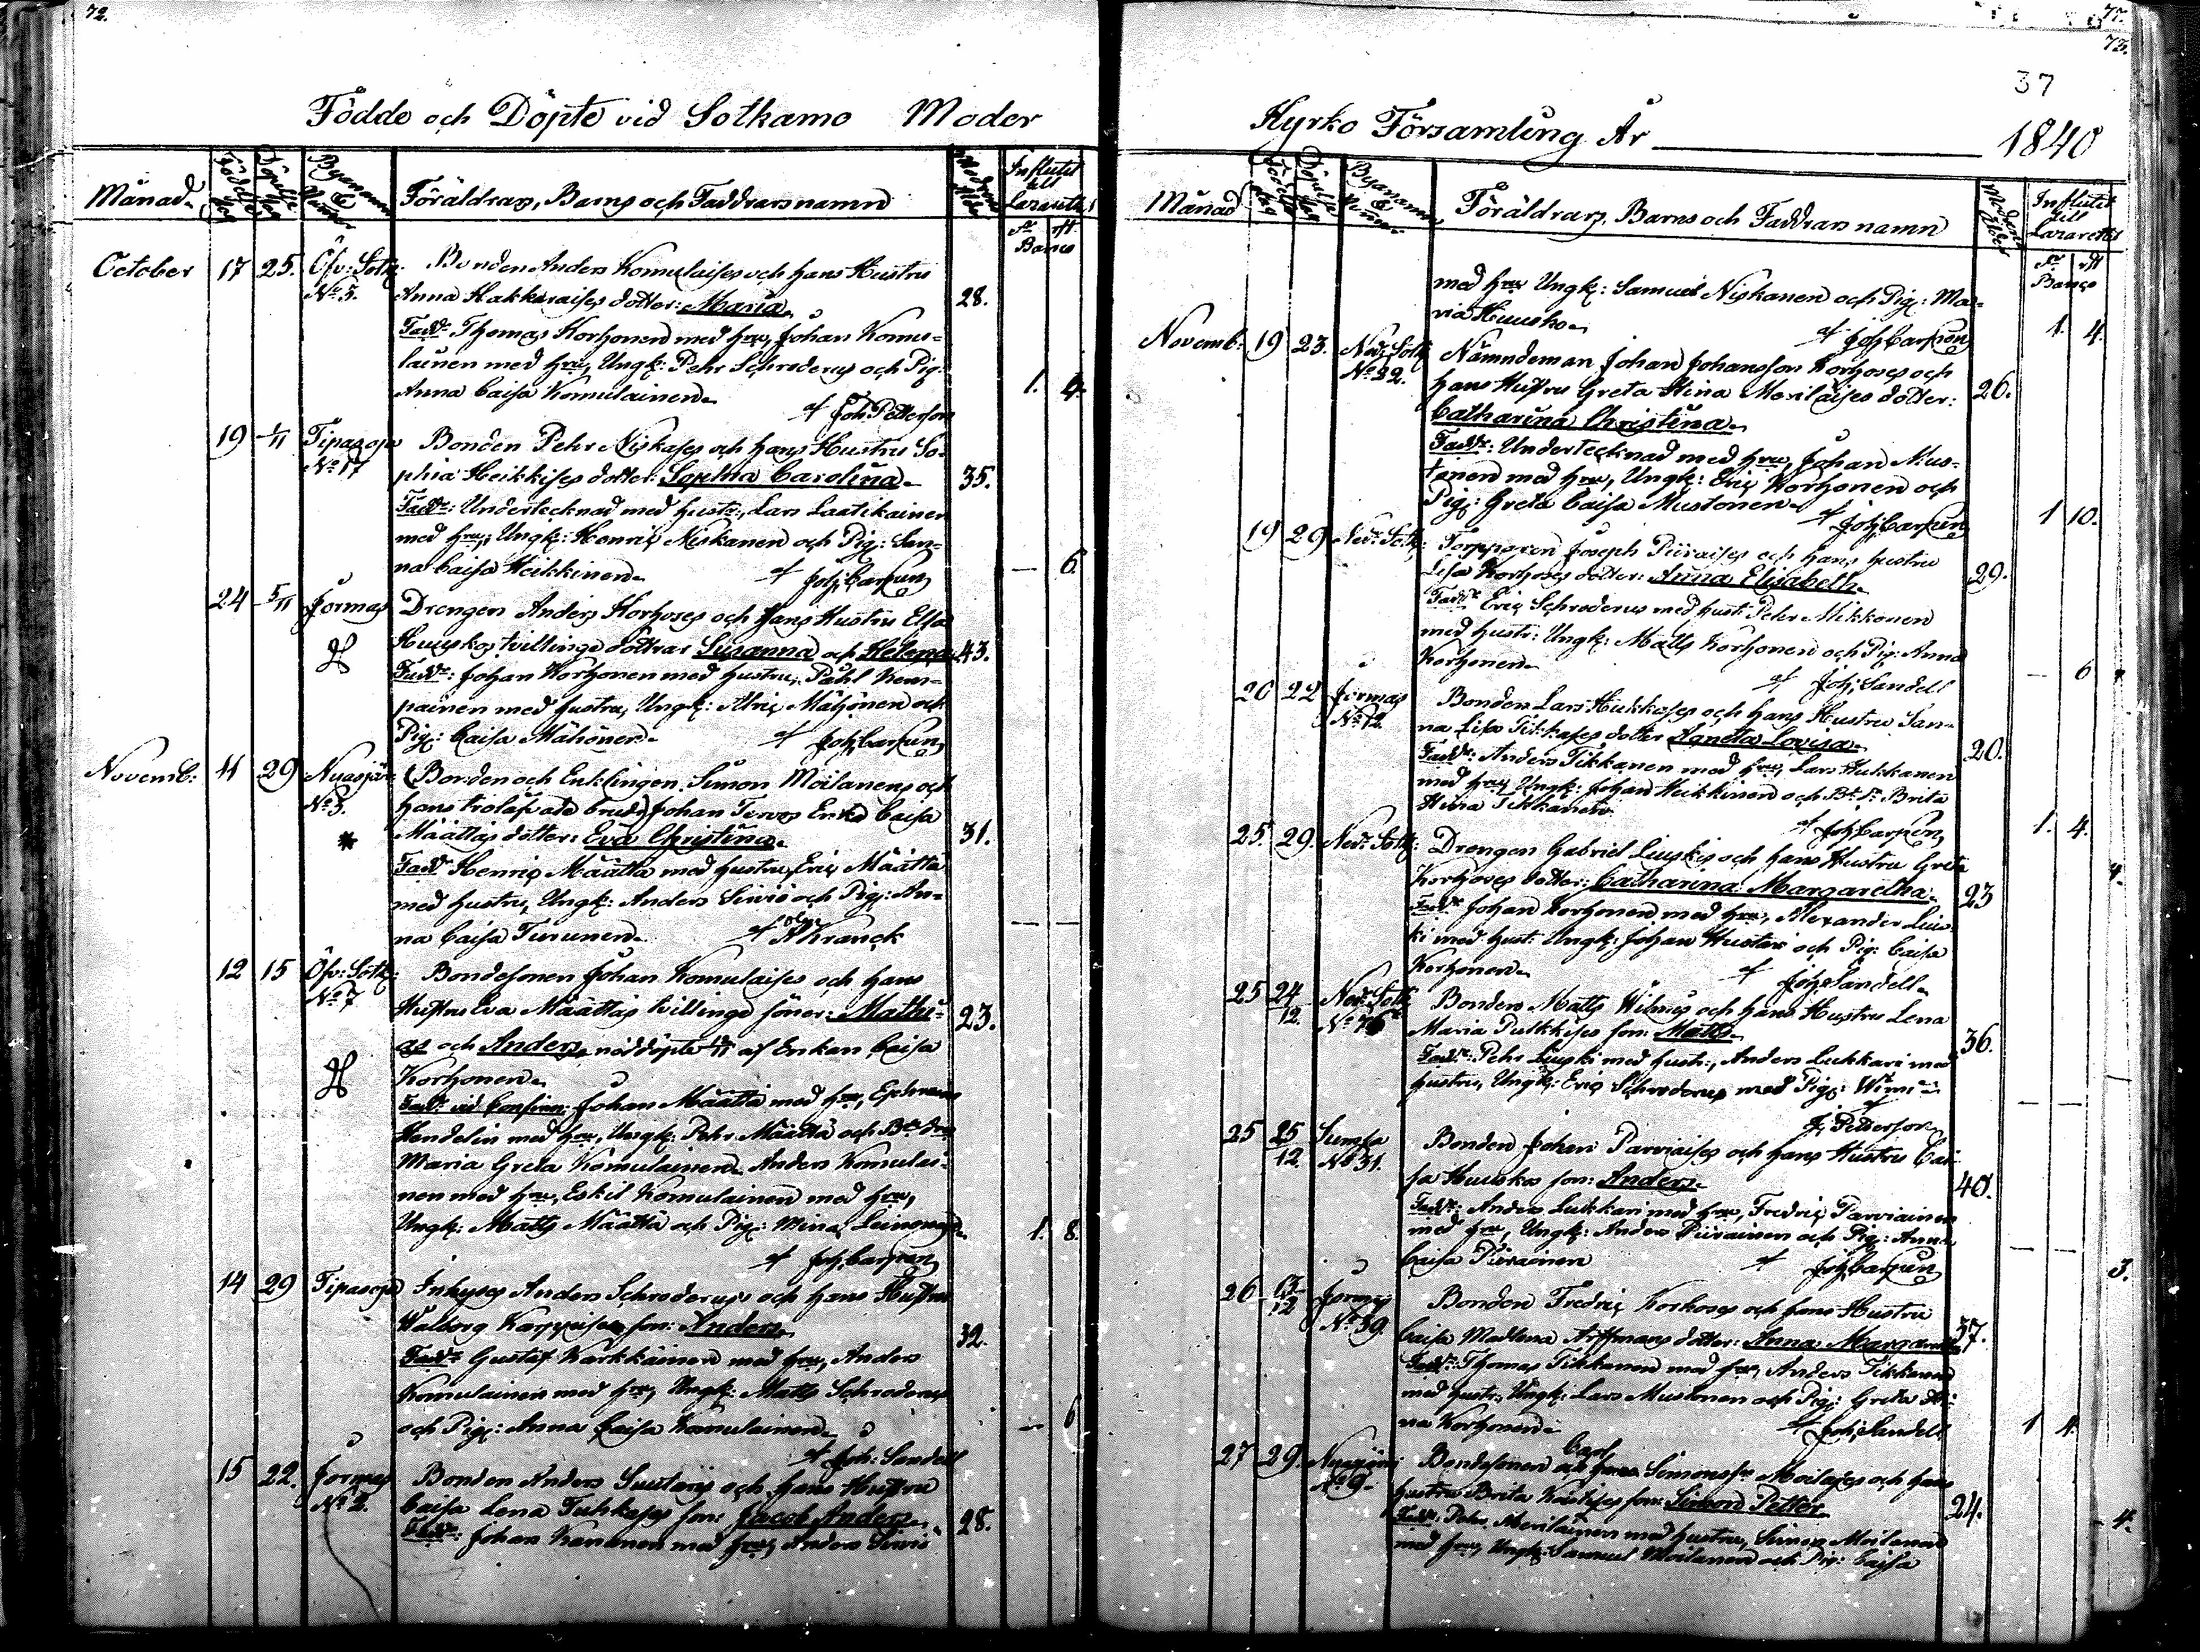 72.
Födde och Döpte vid Sotkamo Moder
Månad. Födelse dag Döpelse dag Byanamn & Numer Föräldrars, Barns och Faddrars namn Modrens Ålder Influtit till Lazarettet
Banco
October 17 25. Öfv: Sotk: Bonden Anders Komulaises och hans Hustru
No 5. Anna Hakkaraises dotter: Maria. 28.
Fadd: Thomas Korhonen med hru, Johan Komu-
lainen med hru, Ungk: Pehr Schroderus och Pig:
Anna Caisa Komulainen. 1. 4.
af Joh: Petterson
19 1/11 Tipasoja Bonden Pehr Niskases och hans Hustru So-
No 17 phia Heikkises dotter: Sophia Carolina. 35.
Fadd: Undertecknad med hustr:, Lars Laatikainen
med hru, Ungk: Henric Niskanen och Pig: San-
na Caisa Heikkinen. — 6.
af Joh: Carpen
24 5/11 Jormas Drengen Anders Korhoses och hans Hustru Elsa
Huuskos tvillinge döttrar Susanna och Helena 43.
Fadd: Johan Korhonen med hustru, Påhl Kem-
painen med hustru, Ungk: Alric Mähönen och
Pig: Caisa Mähönen. af Joh: Carpen
Novemb: 11 29 Nuasjär: (Bonden och Enklingen Simon Moilanens och
No 3. hans trolåfvade brud) Johan Servos Enka Caisa
* Määttäs dotter: Eva Christina. 31.
Fadd: Henric Määttä med hustru, Eric Määttä
med hustru, Ungk: Anders Siviö och Pig: An-
na Caisa Turunen. af Kranck — —
12 15 Öfv: Sotk: Bondesonen Johan Komulaises och hans
No 7 Hustru Eva Määttäs tvillinge söner: Mathi- 23.
as och Anders, nöddöpte af Enkan Caisa
Korhonen.
Fadd: vid Confirm: Johan Määttä med hru, Ephraim
Hendelin med hru, Ungk: Pehr Määttä och
Maria Greta Komulainen. Anders Komulai-
nen med hru, Eskil Komulainen med hru,
Ungk: Matts Määttä och Pig: Mina 1. 8.
af Joh: Carpen
14 29 Tipasoja Inhyses Anders Schroderus och hans Hustru
Walborg Karppises son: Anders. 32.
Fadd: Gustaf Karkkäinen med hru, Anders
Komulainen med hru, Ungk: Matts Schroderus
och Pig: Anna Caisa Komulainen. — 6
af Joh: Sandell
15 22. Jormas Bonden Anders Sustars och hans Hustru
No 2. Caisa Lena Tukkases son: Jacob Anders. 28.
Fadd: Johan Kananen med hru, Anders Siviö
77.
73.
37
Kyrko Församling År — 1840
Månad Födelse dag Döpelse dag Byanamn & Numer Föräldrars, Barns och Faddrars namn Modrens Ålder Influtit till Lazarettet
Banco
med hru, Ungk: Samuel Niskanen och Pig: Ma-
ria Huusko.
af Joh: Carpen 1. 4.
Novemb: 19 23. Ned: Sotk: Nämndeman Johan Johansson Korhoses och
No 22. hans Hustru Greta Stina Merilaises dotter: 26.
Catharina Christina.
Fadd: Undertecknad med hru, Johan Mus-
tonen med hru, Ungk: Eric Korhonen och
Pig: Greta Caisa Mustonen.
af Joh: Carpen 1 10.
19 29 Ned: Sotk: Torpparen Joseph Piiraises och hans hustru
Lisa Korhoses dotter: Anna Elisabeth. 29.
Fadd: Eric Schroderus med hust: Pehr Mikkonen
med hustr: Ungk: Matts Korhonen och Pig: Anna
Korhonen. — 6
af Joh: Sandell
20 22 Jormas Bonden Lars Hukkases och hans Hustru San-
No 12. na Lisa Tikkases dotter Agneta Lovisa. 20.
Fadd: Anders Tikkanen med hru, Lars Hukkanen
med hru, Ungk: Johan Heikkinen och Brita
Stina Tikkanen.
af Joh: Carpen 1. 4.
25. 29. Ned: Sotk: Drengen Gabriel Luskis och hans Hustru Greta
Korhoses dotter: Catharina Margaretha. 23
Fadd: Johan Korhonen med hru, Alexander Lus-
ki med hust: Ungk: Johan och Pig: Caisa
Korhonen.
af Joh: Sandell.
25 24/12. Ned: Sotk: Bonden Matts Wilmis och hans Hustru Lena
Maria Pulkkises son: Matts. 36.
Fadd: Pehr Luski med hustr:, Anders Lukkari med
hustru, Ungk: Eric Schroderus med Pig:
af J: Petterson — —
25 25/12. Sumsa Bonden Johan Parviaises och hans Hustru Cai-
No 31. sa Huuskos son: Anders. 40.
Fadd: Anders Lukkari med hru, Fredric Parviainen
med hru, Ungk: Anders Piirainen och Pig: Anna
Caisa Piirainen af Joh: Carpen — —
3.
26 Jormas Bonden Fredric Korhoses och hans Hustru
No 39. Caisa Madlena Arffmans dotter: Anna Margareta 37.
Fadd: Thomas Tikkanen med hru, Anders Tikkanen
med hustr: Ungk: Lars Mustonen och Pig: Greta Sti-
na Korhonen. af Joh: Sandell 1 4.
27 29. Nuasjärvi Bondesonen Carl Simonsson Moilases och hans
No 9. hustru Brita son: Simon Petter. 24.
Fadd: Pehr Merilainen med hustru, Simon Moilanen
med hru, Ungk: Samuel Moilanen och Pig: Caisa
4.